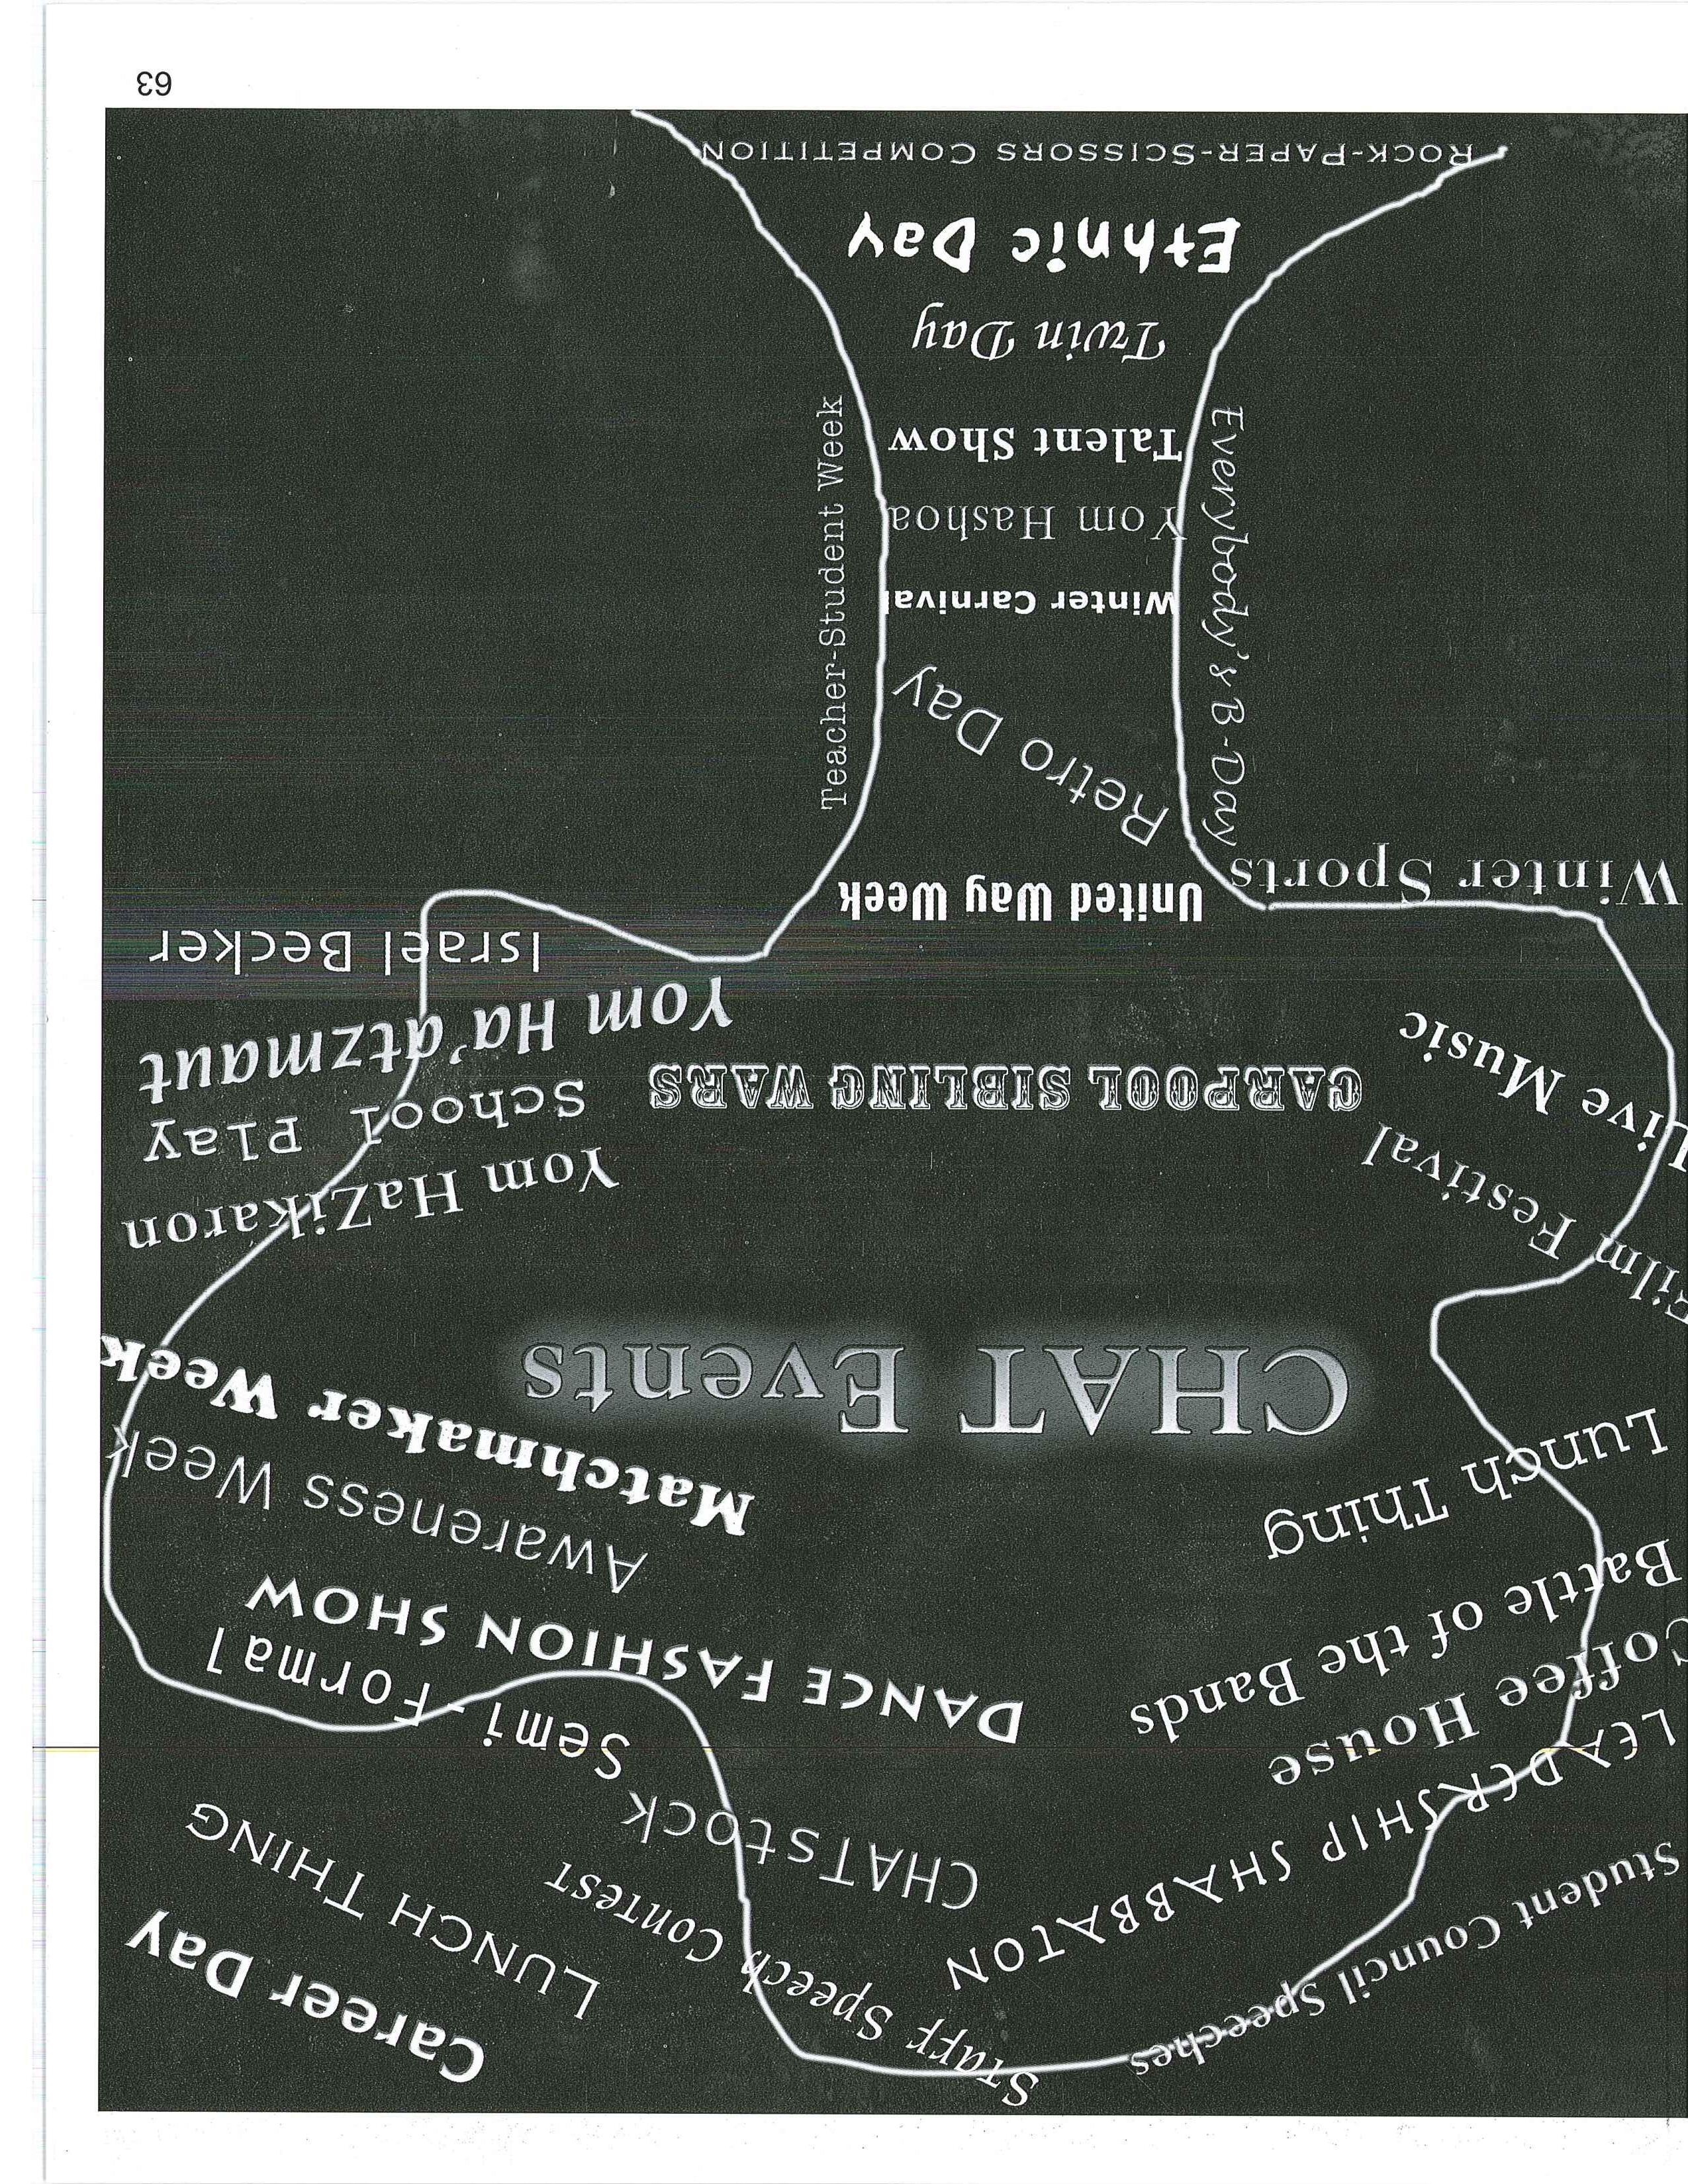 Student Council Speeches
Staff Speech Contest
Career Day
LEADERSHIP SHABBATON
LUNCH THING
CHATstock
Coffee House
Semi-Formal
Battle of the Bands
DANCE FASHION SHOW
Lunch Thing
Awareness Week
Matchmaker Week
CHAT Events
Film Festival
Yom HaZikaron
Live Music
School Play
CARPOOL SIBLING WARS
Yom Ha'atzmaut
Israel Becker
Winter Sports
United Way Week
Retro Day
Everybody's B-Day
Teacher-Student Week
Winter Carnival
Yom Hashoa
Talent Show
Twin Day
Ethnic Day
ROCK-PAPER-SCISSORS COMPETITION
63